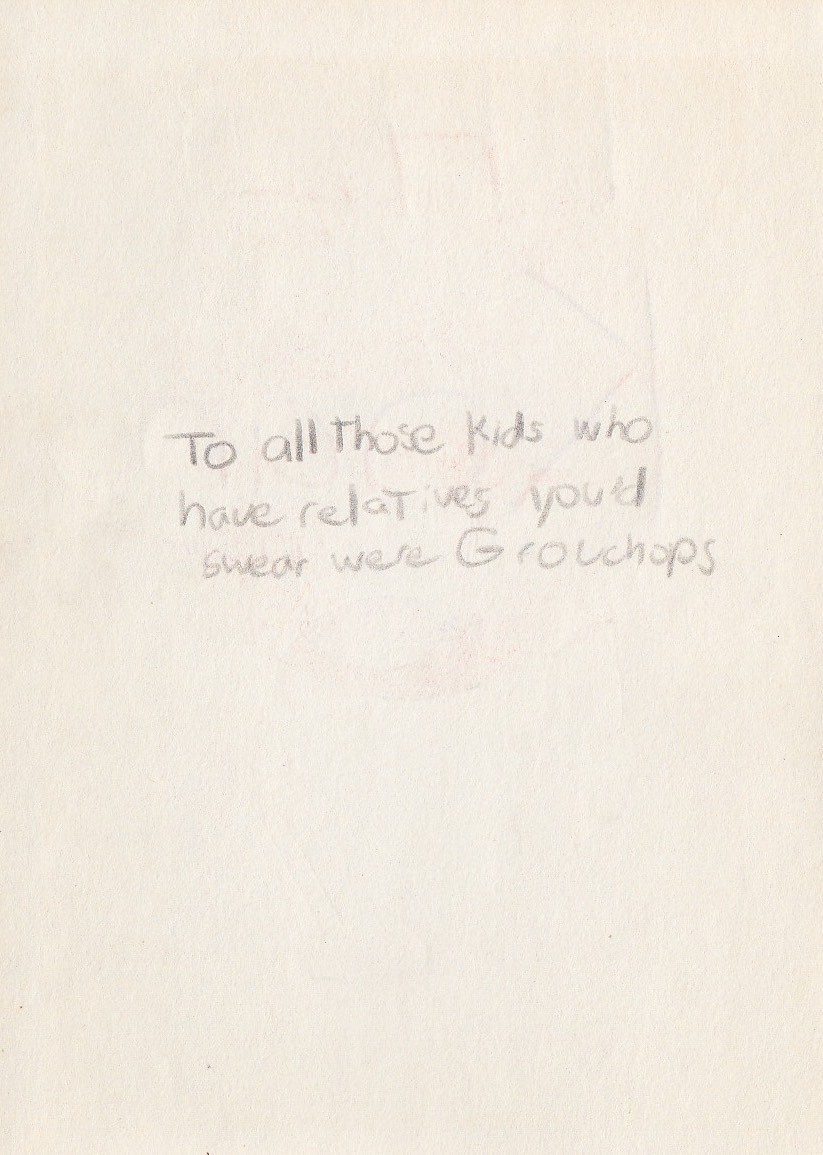 To all those kids who
have relatives you'd
swear were Grouchops